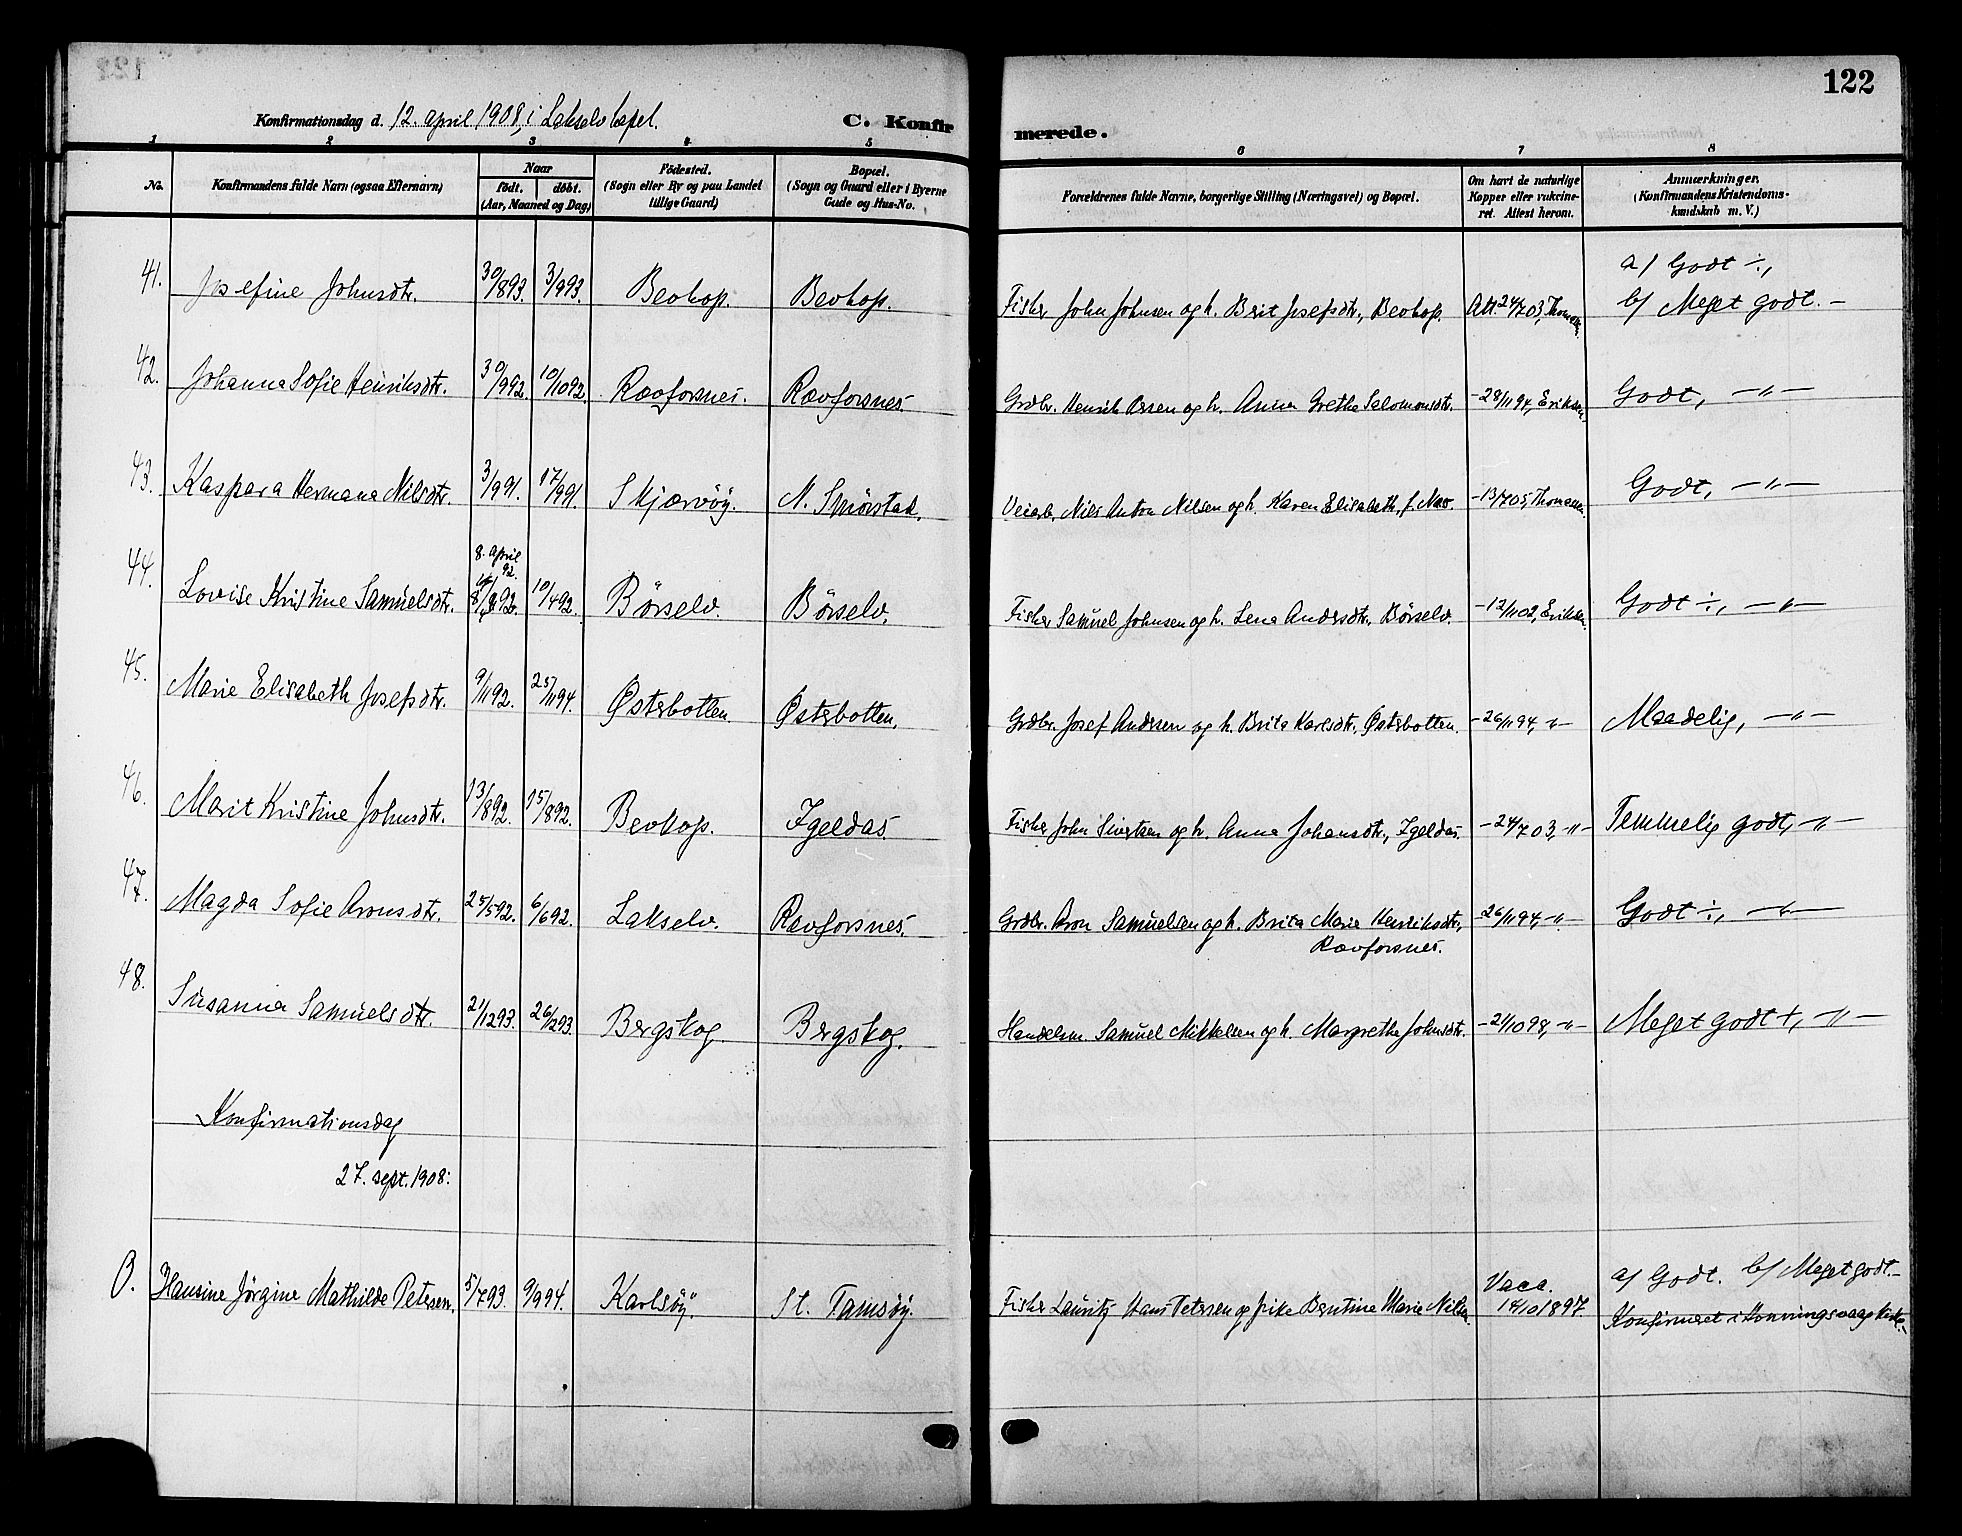 122
Konfirmationsdag d. 12. april 1908, i Lakselv kapel.
C. Konfirmerede.
1 2 3 4 5 6 7 8
No.
Konfirmandens fulde Navn (ogsaa Efternavn)
Naar
født. døbt.
(Aar, Maaned og Dag)
Fødested.
(Sogn eller By og paa Landet
tillige Gaard)
Bopæl.
(Sogn og Gaard eller i Byerne
Gade og Hus-No.
Forældrenes fulde Navne, borgerlige Stilling (Næringsvei) og Bopæl.
Om havt de naturlige
Kopper eller vakcine-
ret. Attest herom.
Anmærkninger.
(Konfirmandens Kristendoms-
kundskab m. V.)
41. Josefine Johnsdtr. 30/893. 3/993. Bevkop. Bevkop. Fisker John Johnsen og h. Berit Josefsdtr., Bevkop. Att. 24/703, Thomassen a/ Godt ÷,
b/ Meget godt. –
42. Johanna Sofie Henriksdtr. 30/992. 10/1092. Rævfosnes. Rævfosnes. Grdbr. Henrik Olsen og h. Anna Grethe Salomonsdtr. – 28/1194, Eriksen. Godt, –〃–
43. Kaspara Hermana Nilsdtr. 3/991. 17/991. Skjærvöy. N. Smörstad. Veiarb. Nils Anton Nilsen og h. Karen Elisabeth, f. Næss. – 13/705, Thomassen. Godt, –〃–
8. april
92.
44. Lovise Kristine Samuelsdtr. 10/492. Börselv. Börselv. Fisker Samuel Johnsen og h. Lena Andersdtr., Börselv. – 12/1102, Eriksen. Godt ÷, –〃–
45. Marie Elisabeth Josefsdtr. 9/1192. 25/1194. Østerbotten. Østerbotten. Grdbr. Josef Andersen og h. Brita Karlsdtr. Østerbotten. – 26/1194, –〃– Maadelig, –〃–
46. Marit Kristine Johnsdtr. 13/892. 15/892. Bevkop. Igeldas Fisker John Sivertsen og h. Anna Johansdtr., Igeldas. – 24/703, –〃– Temmelig godt, –〃–
47. Magda Sofie Aronsdtr. 25/592. 6/692. Lakselv. Rævfosnes. Grdbr. Aron Samuelsen og h. Brita Marie Henriksdtr.,
Rævfosnes. – 26/1194, –〃– Godt ÷, –〃–
48. Susanna Samuelsdtr. 21/1293. 26/1293. Bergskog Bergskog. Handelsm. Samuel Mikkelsen og h. Margrethe Johnsdtr. – 21/1098, –〃– Meget godt +, –〃–
Konfirmationsdag
27. sept. 1908:
Hansine Jörgine Mathilde Petersen. 5/793. 9/994. Karlsöy. St. Tamsöy. Fisker Lauritz Hans Petersen og frike Bertine Marie Nilsen. Vacc.
18/101897. a/ Godt. b/ Meget godt. –
Konfirmeret i Honningsvaag kirke.